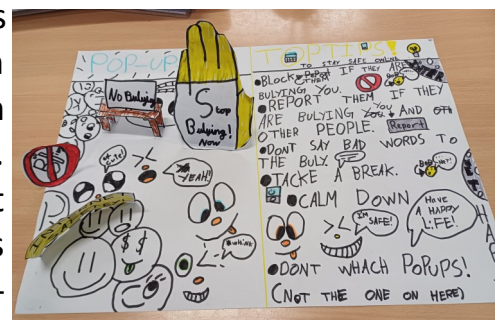 POP-UP
No Bullying
Stop
Bullying!
Now
YEAH!
TOP TIPS!
TO STAY SAFE ONLINE
BLOCK THEM IF THEY ARE
BULYING YOU.
REPORT THEM IF THEY
ARE BULLYING YOU AND
OTHER PEOPLE. Report
DONT SAY BAD WORDS TO
THE BULY.
TACKE A BREAK.
CALM DOWN
I'M
SAFE!
HAVE
A HAPPY
LIFE!
DONT WHACH POPUPS!
(NOT THE ONE ON HERE)